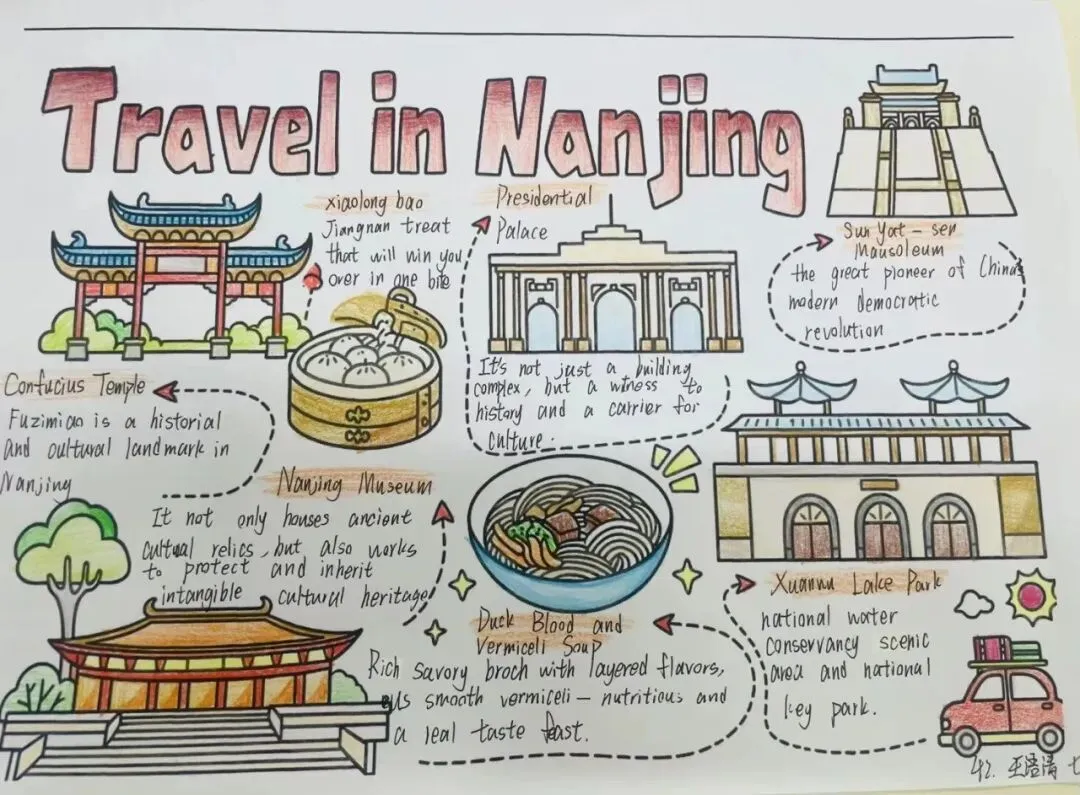 Travel in Nanjing
xiaolong bao
Jiangnan treat
that will win you
over in one bite
Presidential
Palace
It's not just a building
complex, but a witness to
history and a carrier for
culture.
Sun Yat-sen
Mausoleum
the great pioneer of China's
modern democratic
revolution
Confucius Temple
Fuzimiao is a historial
and cultural landmark in
Nanjing
Nanjing Museum
It not only houses ancient
cultual relics, but also works
to protect and inherit
intangible cultural heritage
Duck Blood and
Vermiceli Soup
Rich savory broch with layered flavors,
smooth vermiceli — nutritious and
a real taste feast.
Xuanwu Lake Park
national water
conservancy scenic
area and national
key park.
42.